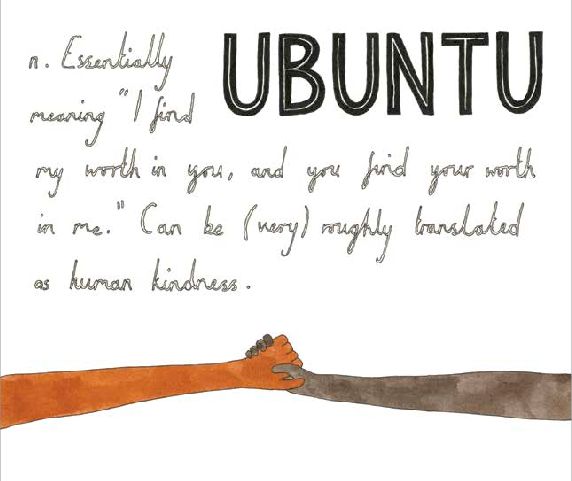 UBUNTU
n. Essentially
meaning "I find
my worth in you, and you find your worth
in me." Can be (very) roughly translated
as human kindness.